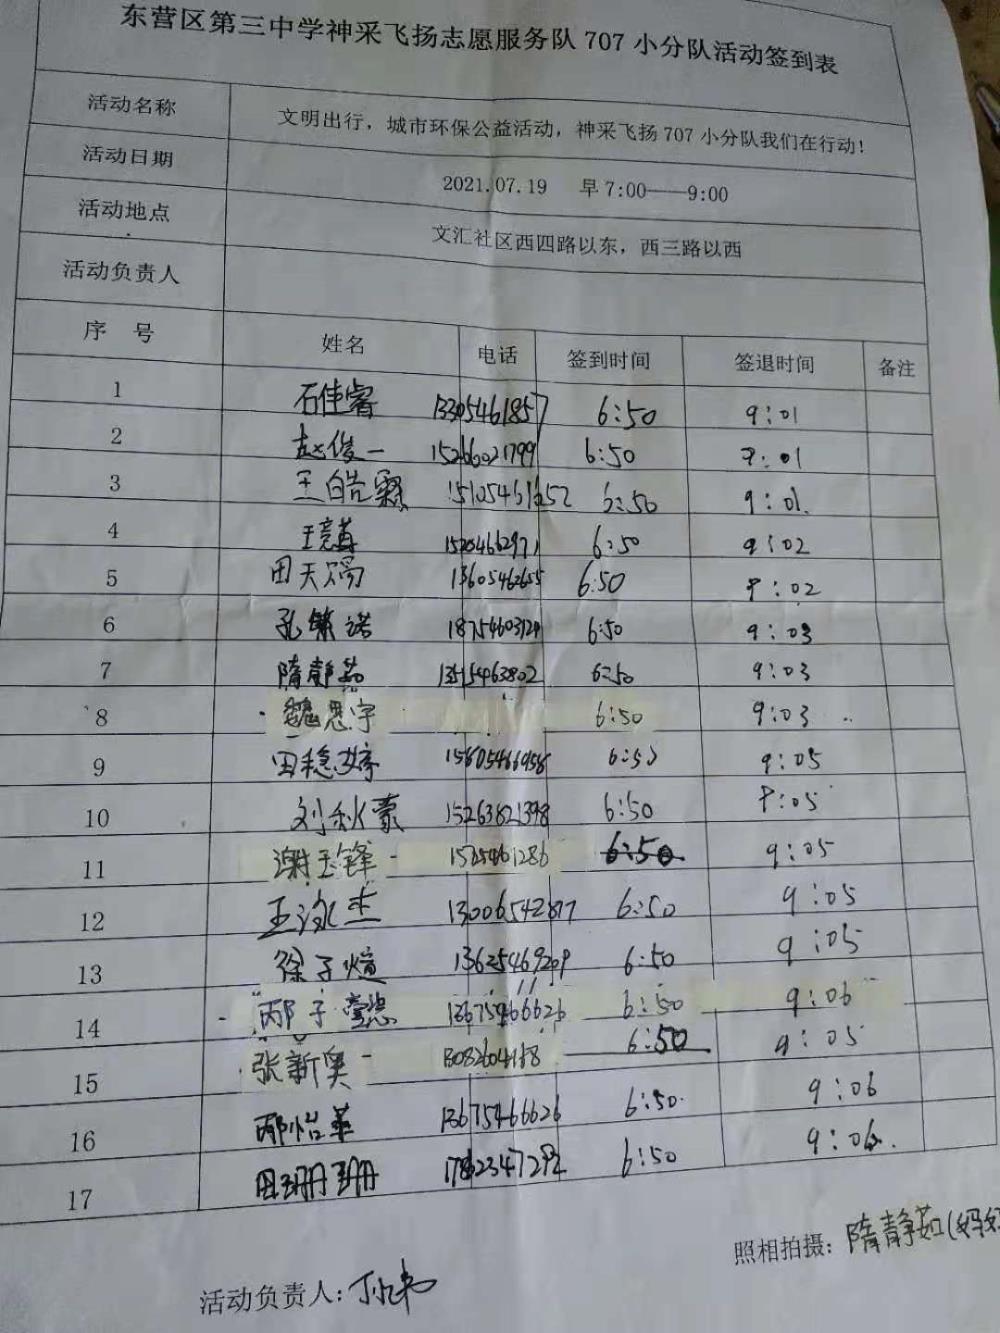 东营区第三中学神采飞扬志愿服务队 707 小分队活动签到表
活动名称 文明出行，城市环保公益活动，神采飞扬 707 小分队我们在行动！
活动日期 2021.07.19 早 7:00——9:00
活动地点 文汇社区西四路以东，西三路以西
活动负责人
序 号 姓名 电话 签到时间 签退时间 备注
1 石佳睿 13305461857 6:50 9:01
2 赵俊一 15266021799 6:50 9:01
3 王皓霖 15105461652 6:50 9:01
4 6:50 9:02
5 田天赐 13605462655 6:50 9:02
6 孔繁诺 18754603124 6:50 9:03
7 隋静茹 6:50 9:03
8 魏思宇 6:50 9:03
9 田稳婷 6:50 9:05
10 刘秋蒙 15263821398 6:50 9:05
11 谢玉锋 6:50 9:05
12 王泳杰 13006542877 6:50 9:05
13 徐子煊 13625469209 6:50 9:05
14 邴子懿 13675466626 6:50 9:06
15 张新奥 6:50 9:05
16 邴怡華 13675466626 6:50 9:06
17 田珊珊 17862347292 6:50 9:06
照相拍摄：隋静茹(妈妈
活动负责人：